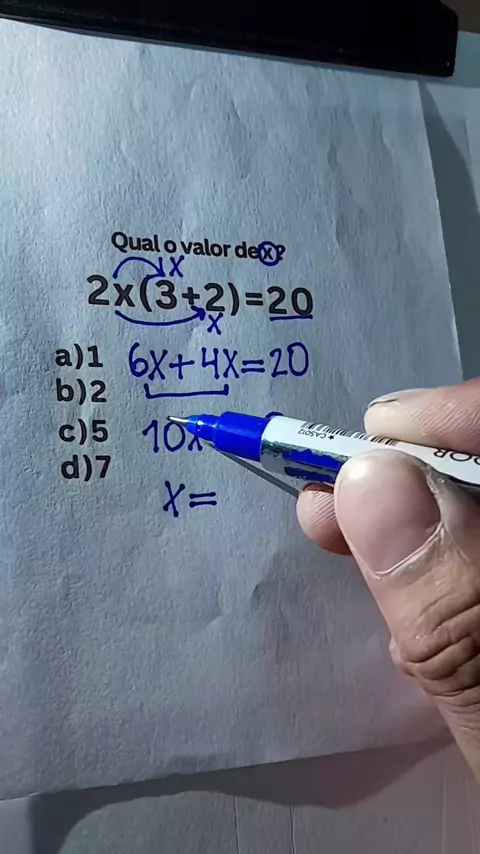 Qual o valor de x?
x
2x(3+2)=20
x
a)1 6x+4x=20
b)2
c)5 10x
d)7
x=
CASO12